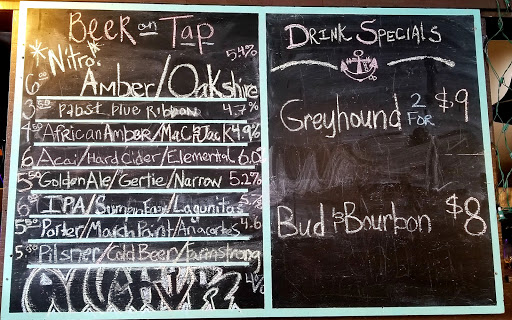 Beer on Tap
*Nitro* 5.4%
6.00 Amber/Oakshire
3.50 Pabst Blue Ribbon 4.7%
4.50 African Amber/Mac & Jack 4.9%
6 Acai/Hard Cider/Elemental 6.0
5.50 Golden Ale/Gertie/Narrow 5.2%
IPA/Lagunitas
5.50 Porter/March Point/Anacortes 4.6
5.50 Pilsner/Cold Beer/Farmstrong
Drink Specials
Greyhound 2 FOR $9
Bud & Bourbon $8